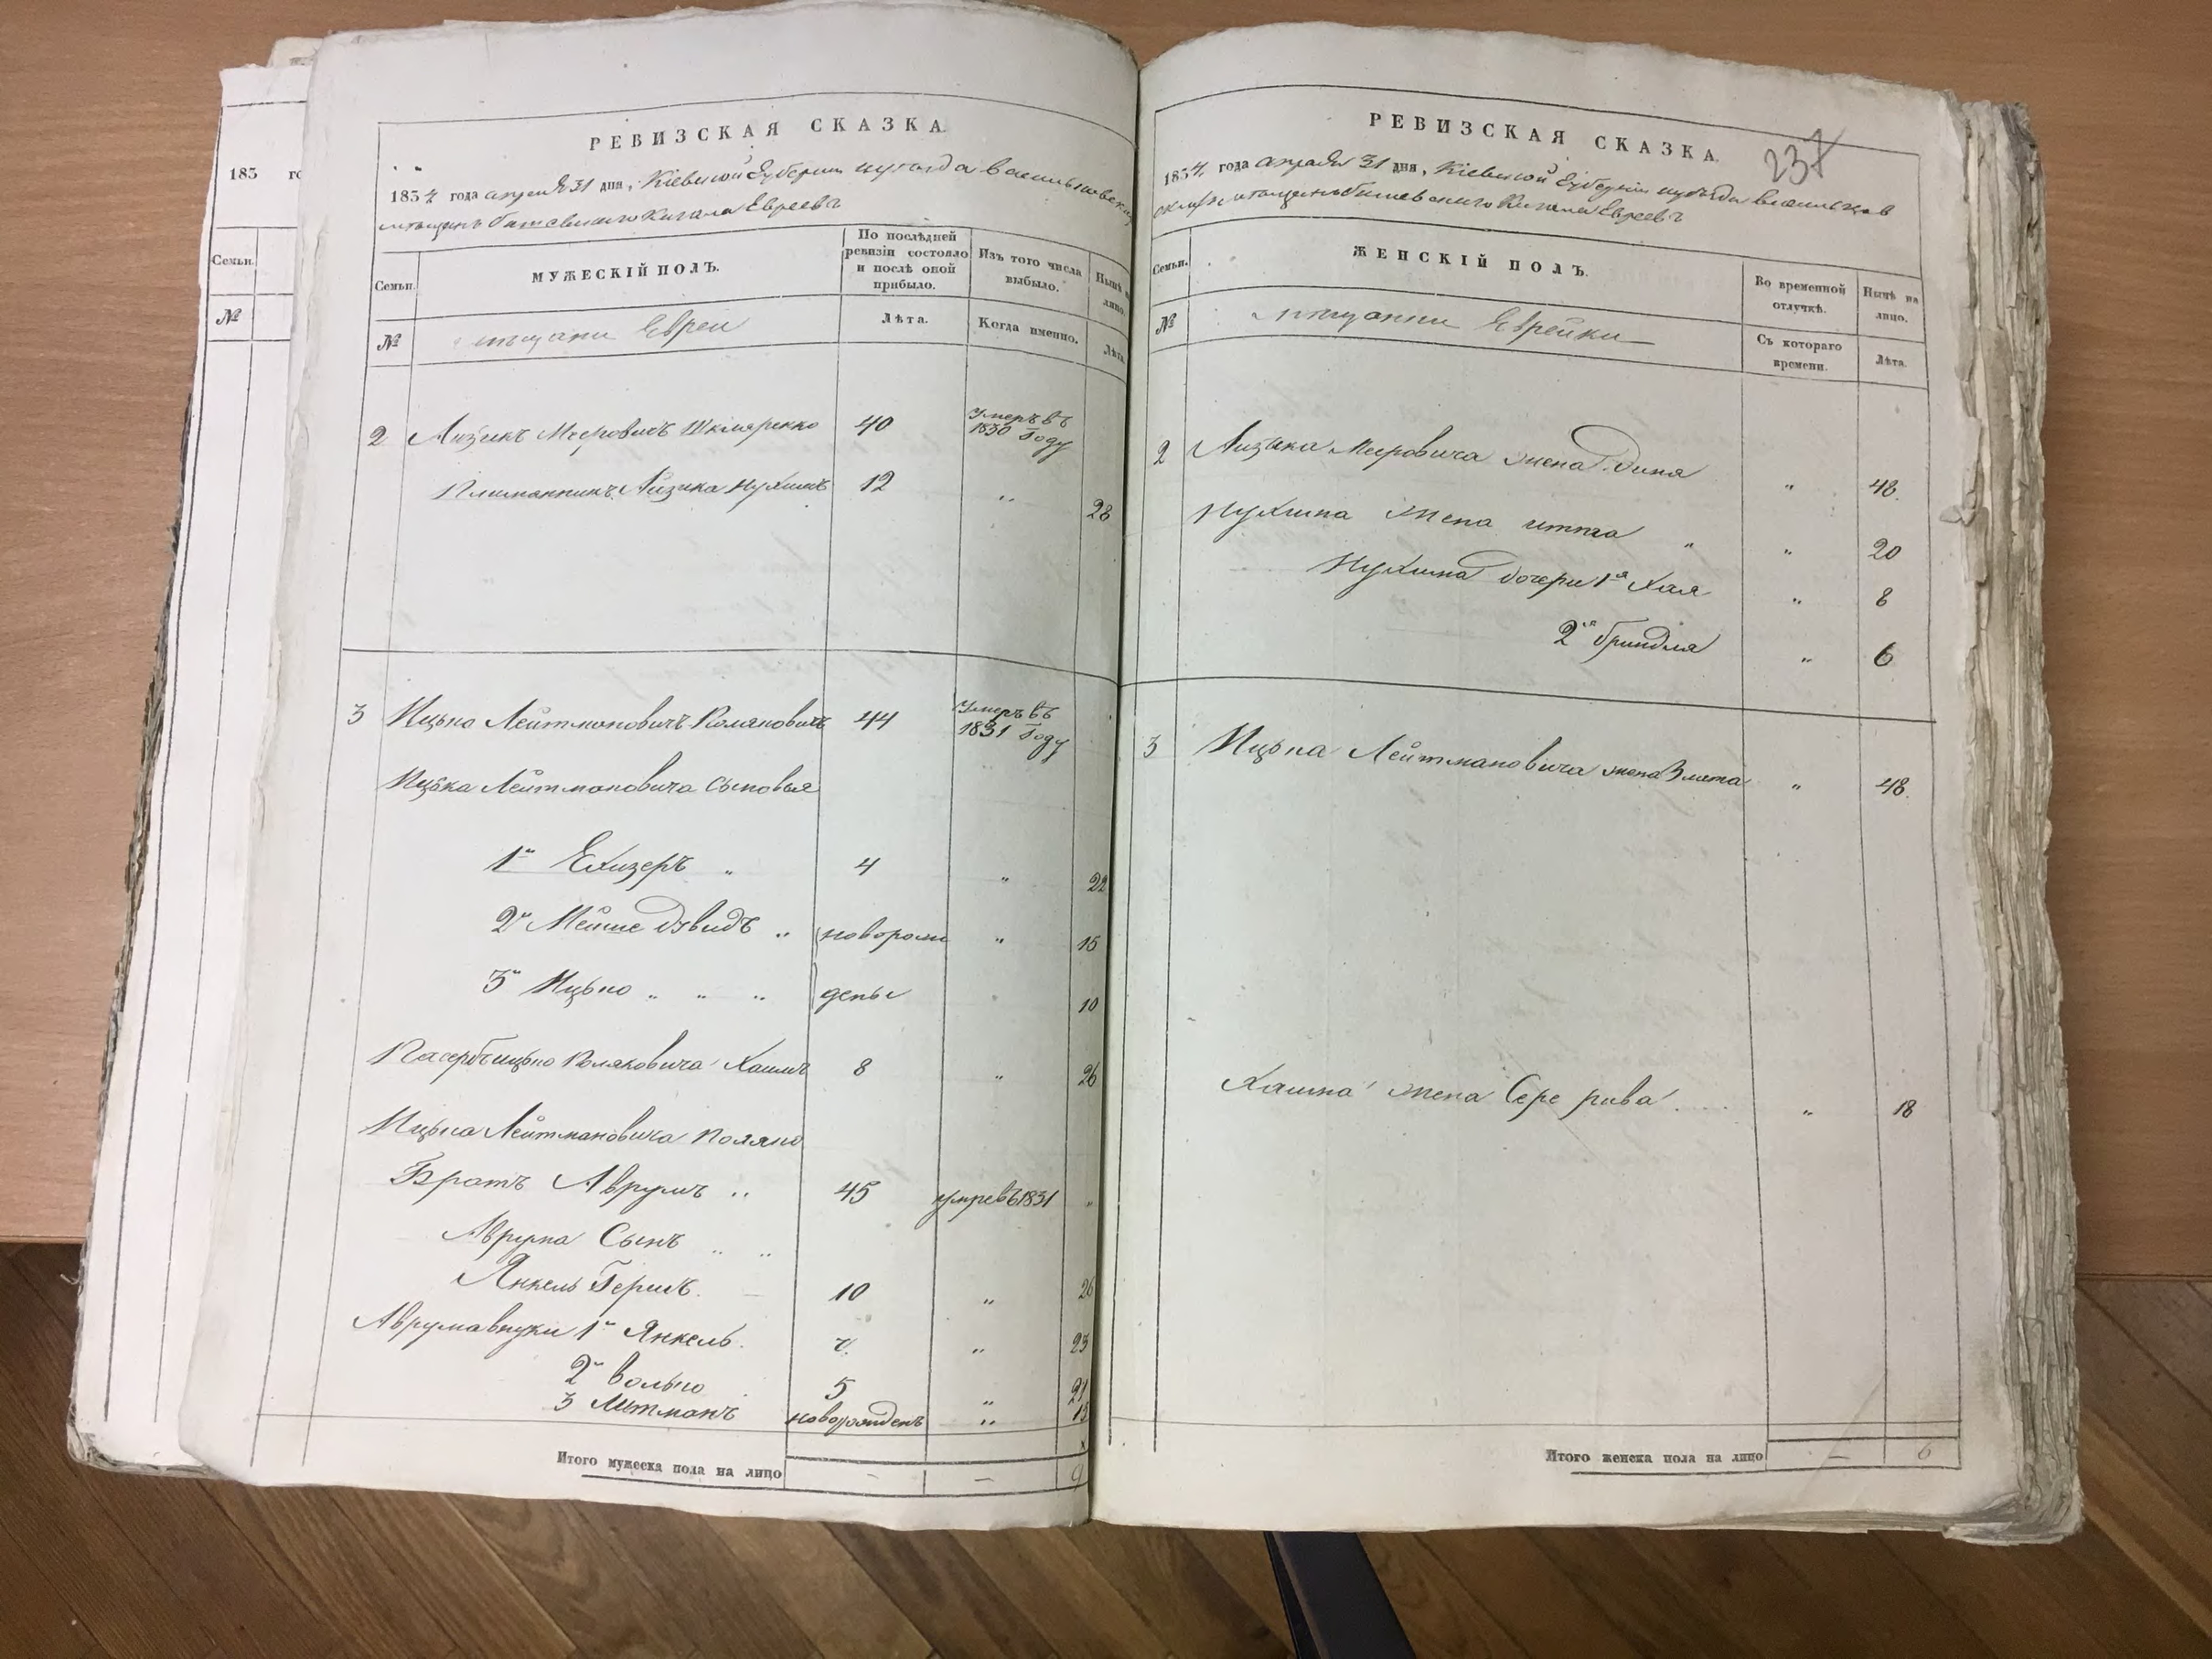 183 го
Семьи.
№
РЕВИЗСКАЯ СКАЗКА.
1834 года апреля 31 дня, Кіевской Губерніи уезда Васильковского
мещанъ Кагала Евреевъ
Семьи.
МУЖЕСКІЙ ПОЛЪ.
По послѣдней ревизіи состояло и послѣ оной прибыло.
Изъ того числа выбыло.
Нынѣ на лицо.
№
мещани Евреи
Лѣта.
Когда именно.
Лѣта.
2 Айзикъ Мееровичъ Шкляренко 40 Умеръ въ 1830 Году
Племянникъ Айзика Нухимъ 12 " 28
3 Ицько Лейтмановичъ Поляковичъ 44 Умеръ въ 1831 Году
Ицька Лейтмановича Сыновья
1й Елизеръ " 4 " 22
2й Мейше Дввидъ " новорож " 15
3й Ицько " " " дены 10
Пасербъ Ицько Поляковича Хаимъ 8 " 26
Ицька Лейтмановича Поляко
Братъ Аврумъ " 45 умре въ 1831 "
Аврума Сынъ " "
Янкель Гершъ. 10 " 26
Аврума внуки 1й Янкель. " 23
2й Волько 5 " 21
3 Литманъ новорожденъ " 15
Итого мужеска пола на лицо — — 9
РЕВИЗСКАЯ СКАЗКА.
237
1834 года апреля 31 дня, Кіевской Губерніи уезда Васильков
ского мещанъ Кагала Евреевъ
Семьи.
ЖЕНСКІЙ ПОЛЪ.
Во временной отлучкѣ.
Нынѣ на лицо.
№
мещанки Еврейки
Съ котораго времени.
Лѣта.
2 Айзика Мееровича жена Дина " 48.
Нухима жена итта " " 20
Нухима дочери 1я Хая " 8
2я Бриндля " 6
3 Ицька Лейтмановича жена Злата " 48.
Хаима жена Сере рива. " 18
Итого женска пола на лицо — 6